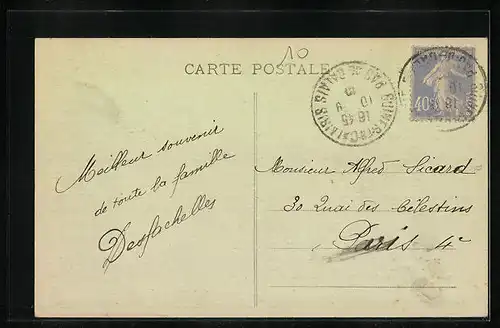 10
CARTE POSTALE
PAS DE CALAIS
18 45
10
40
Meilleur souvenir
de toute la famille
Desfachelles
Monsieur Alfred Sicard
30 Quai des Célestins
Paris 4e